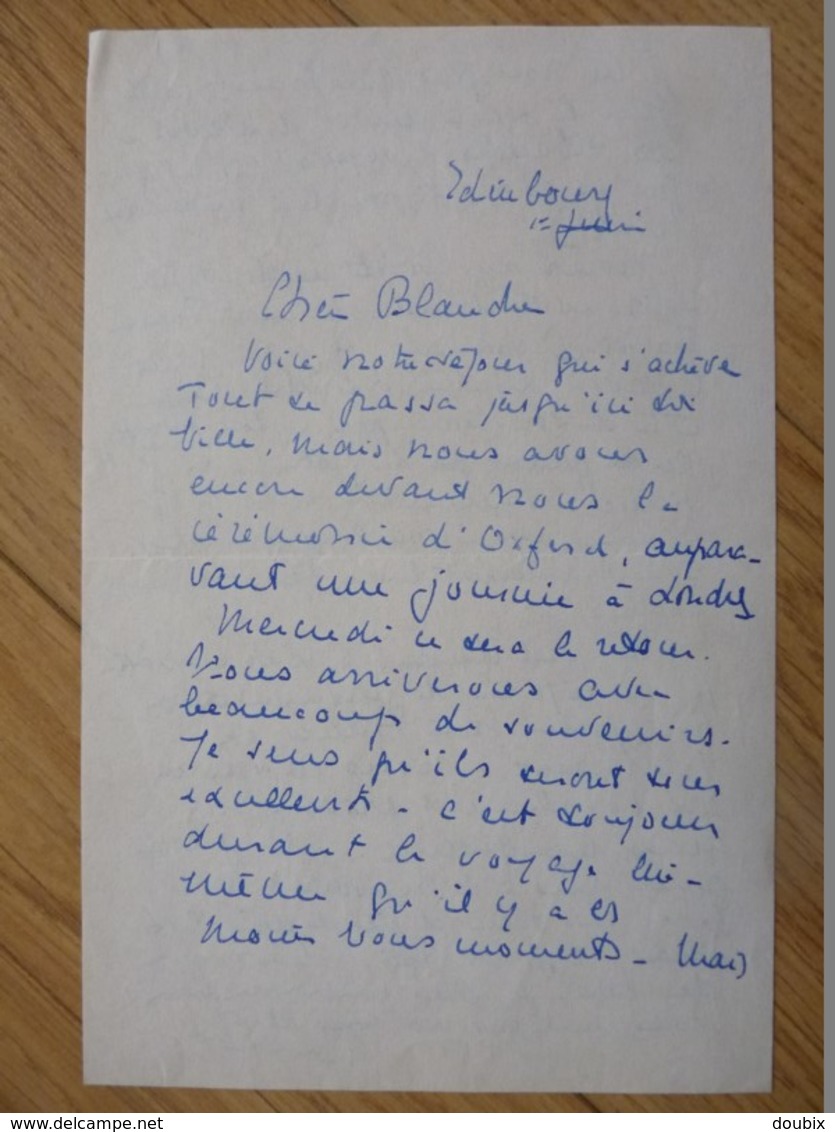 Edimbourg
1er Juin
Chère Blanche
Voici notre séjour qui s'achève
Tout se passa jusqu'ici
mais nous avons
encore devant nous la
cérémonie d'Oxford, aupara-
vant une journée à Londres
Mercredi ce sera le retour.
Nous arriverons avec
beaucoup de souvenirs.
Je sens qu'ils seront
excellents - c'est toujours
durant le voyage lui-
même qu'il y a les
moins bons moments - Mais
delcampe.net
doubix